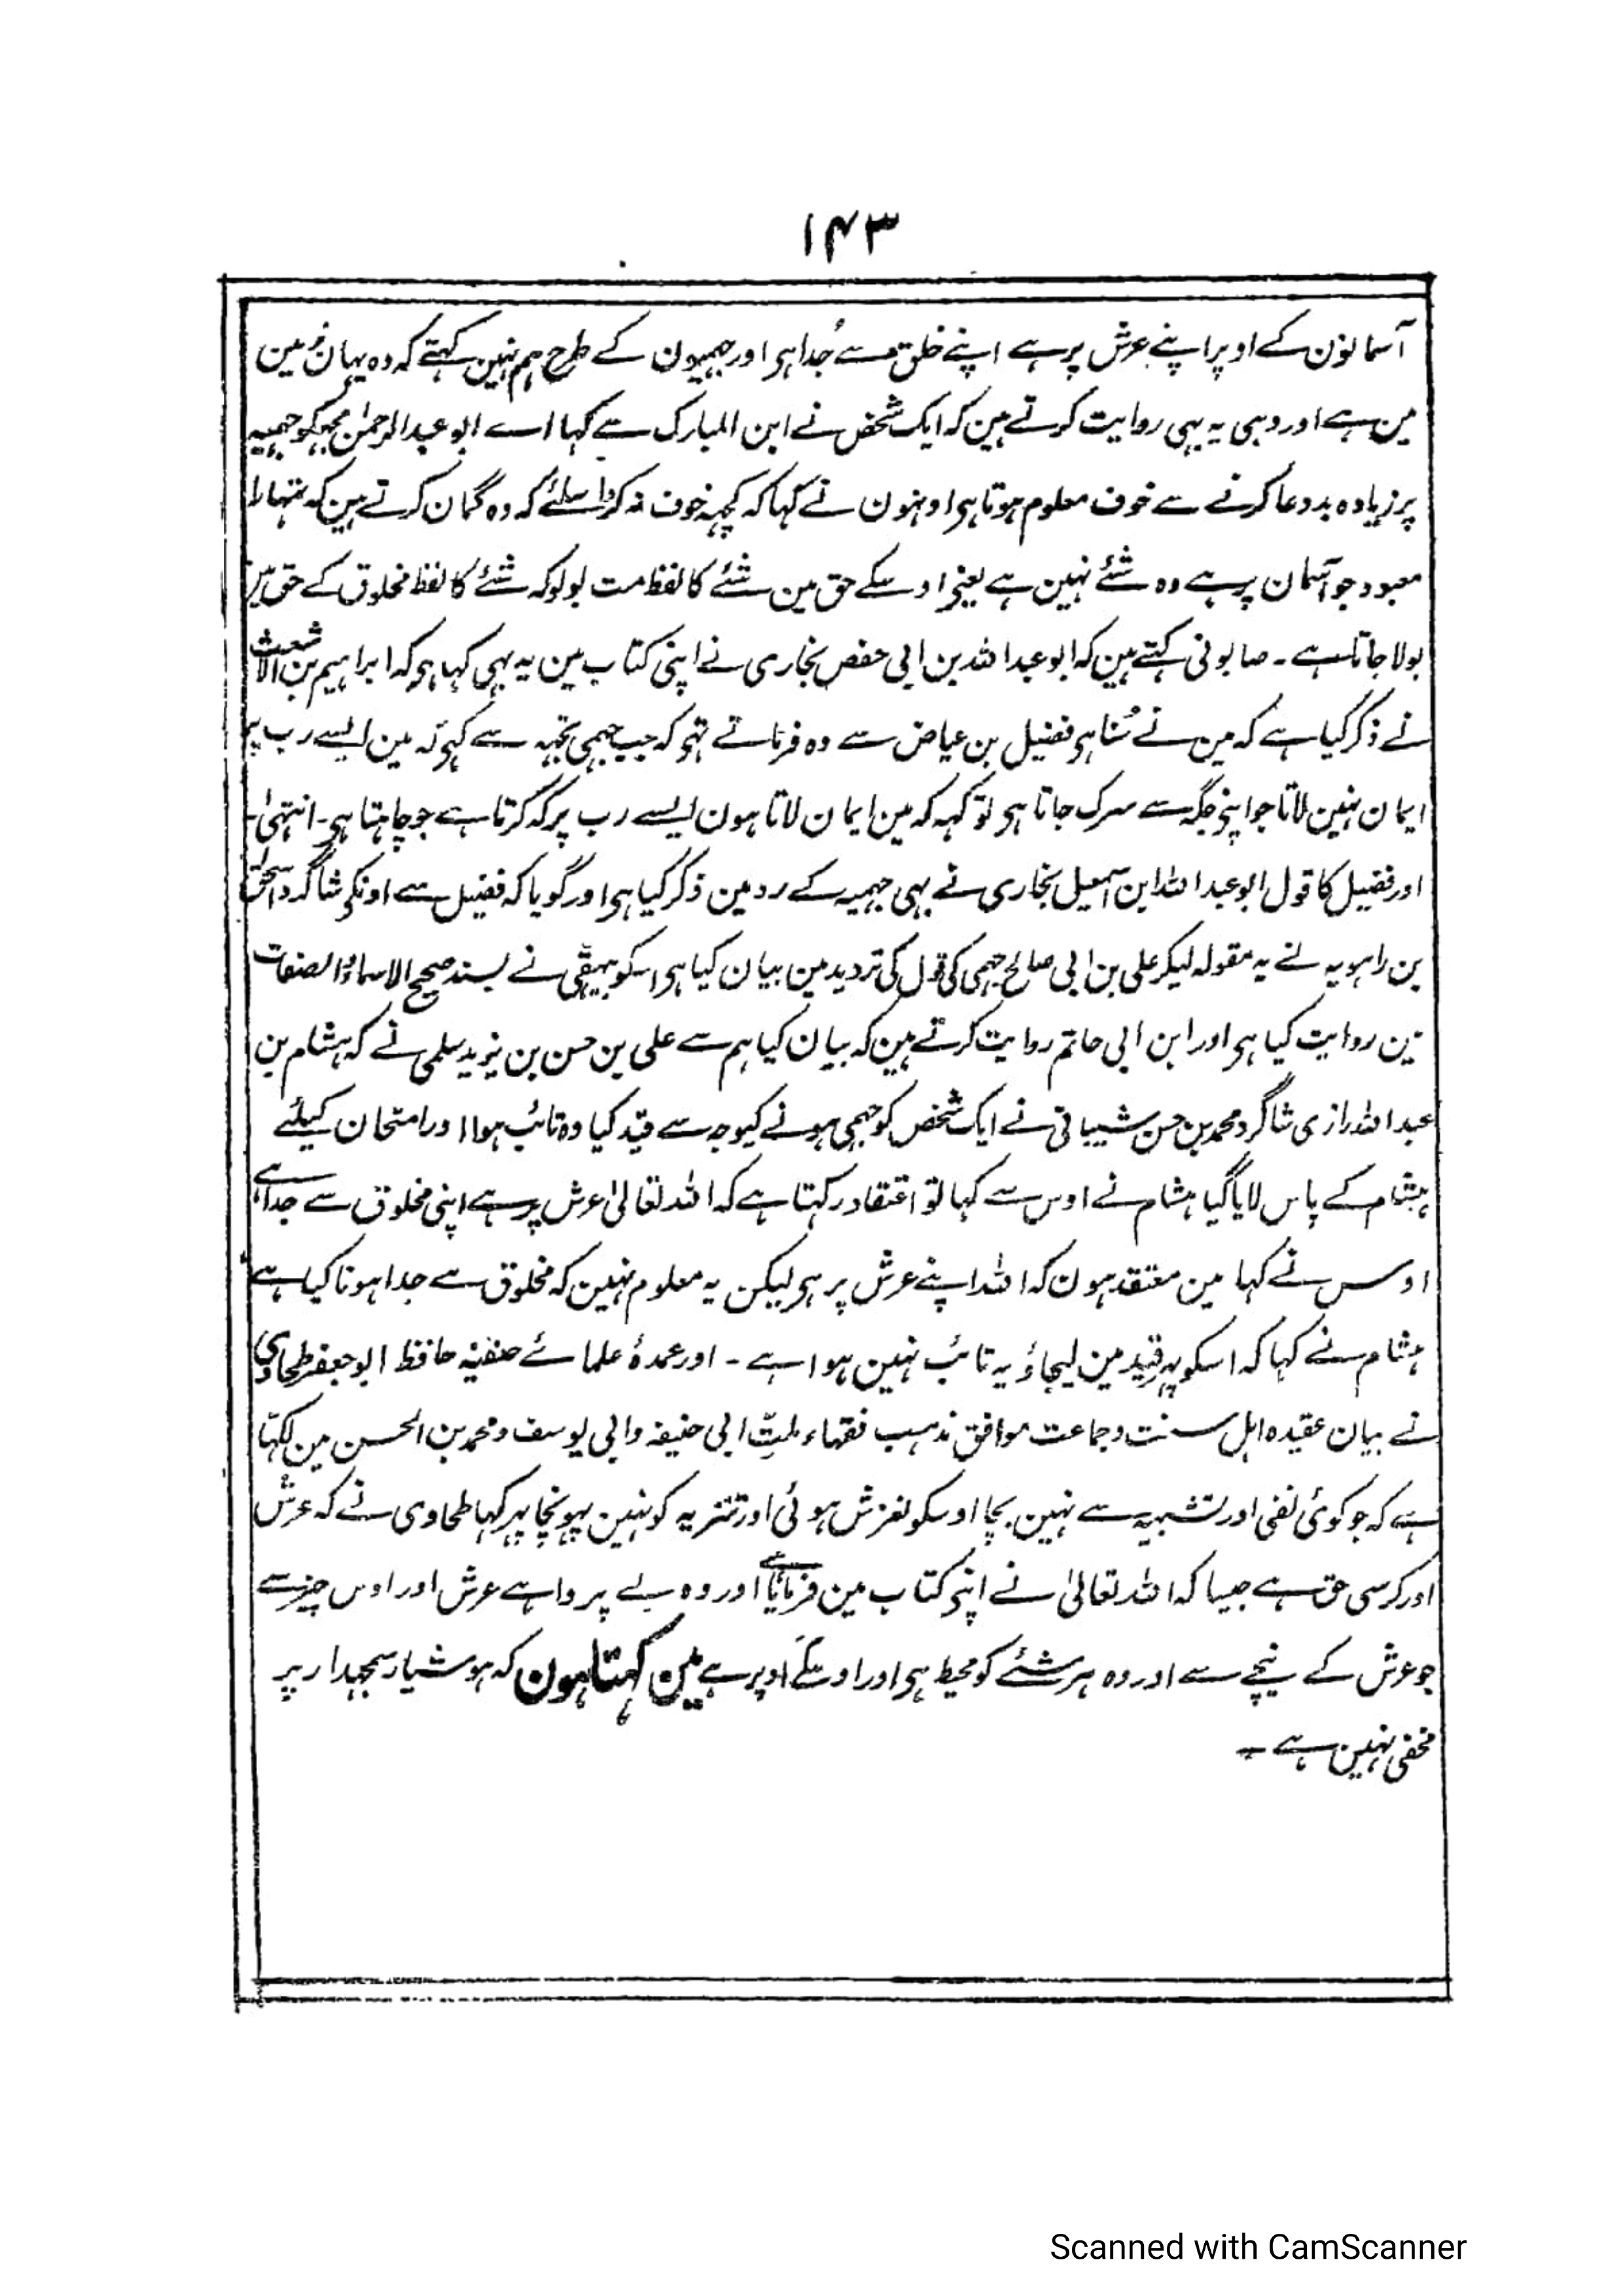 ۱۴۳
آسمانون کے اوپر اپنے عرش پر ہے اپنے خلق سے جُدا ہی اور جہمیون کے طرح ہم نہین کہتے کہ وہ یہان زمین
مین ہے اور وہی یہ بہی روایت کرتے ہین کہ ایک شخص نے ابن المبارک سے کہا اے ابو عبدالرحمٰن مجہکو جہمیہ
پر زیادہ بددعا کرنے سے خوف معلوم ہوتا ہی اونہون نے کہا کہ کچہہ خوف نہ کر اسلئے کہ وہ گمان کرتے ہین کہ تمہارا
معبود جو آسمان پر ہے وہ شئے نہین ہے یعنی اوسکے حق مین شئے کا لفظ مت بولو کہ شئے کا لفظ مخلوق کے حق مین
بولا جاتا ہے ۔ صابونی کہتے ہین کہ ابو عبداللہ بن ابی حفص بخاری نے اپنی کتاب مین یہ بہی کہا ہی کہ ابراہیم بن الاشعث
نے ذکر کیا ہے کہ مین نے سُنا ہی فضیل بن عیاض سے وہ فرماتے تہی کہ جب جہمی تجہہ سے کہی کہ مین ایسے رب پر
ایمان نہین لاتا جو اپنی جگہ سے سرک جاتا ہی تو کہہ کہ مین ایمان لاتا ہون ایسے رب پر کہ کرتا ہے جو چاہتا ہی ۔ انتہیٰ ۔
اور فضیل کا قول ابو عبداللہ ابن اسمعیل بخاری نے بہی جہمیہ کے رد مین ذکر کیا ہی اور گویا کہ فضیل سے اونکی شاگرد اسحٰق
بن راہویہ نے یہ مقولہ لیکر علی بن ابی صالح جہمی کی قول کی تردید مین بیان کیا ہی اسکو بیہقی نے بسند صحیح الاسماء والصفات
مین روایت کیا ہی اور ابن ابی حاتم روایت کرتے ہین کہ بیان کیا ہم سے علی بن حسن بن یزید سلمی نے کہ ہشام بن
عبداللہ رازی شاگرد محمد بن حسن شیبانی نے ایک شخص کو جہمی ہونے کیوجہ سے قید کیا وہ تائب ہوا اور امتحان کیلئے
ہشام کے پاس لایا گیا ہشام نے اوس سے کہا تو اعتقاد رکہتا ہے کہ اللہ تعالیٰ عرش پر ہے اپنی مخلوق سے جدا ہے
اوس نے کہا مین معتقد ہون کہ اللہ اپنے عرش پر ہی لیکن یہ معلوم نہین کہ مخلوق سے جدا ہونا کیا ہے
ہشام نے کہا کہ اسکو پہر قید مین لیجاؤ یہ تائب نہین ہوا ہے ۔ اور عمدۂ علمائے حنفیہ حافظ ابو جعفر طحاوی
نے بیان عقیدہ اہل سنت و جماعت موافق مذہب فقہاء ملت ابی حنیفہ و ابی یوسف و محمد بن الحسن مین لکہا
ہے کہ جو کوئی نفی اور تشبیہ سے نہین بچا اوسکو لغزش ہوئی اور تنزیہ کو نہین پہونچا پہر کہا طحاوی نے کہ عرش
اور کرسی حق ہے جیسا کہ اللہ تعالیٰ نے اپنی کتاب مین فرمایا ہے اور وہ بے پروا ہے عرش اور اوس چیز سے
جو عرش کے نیچے ہے اور وہ ہر شئے کو محیط ہی اور اوسکے اوپر ہے مین کہتا ہون کہ ہوشیار سمجہدار پر
مخفی نہین ہے ۔
Scanned with CamScanner